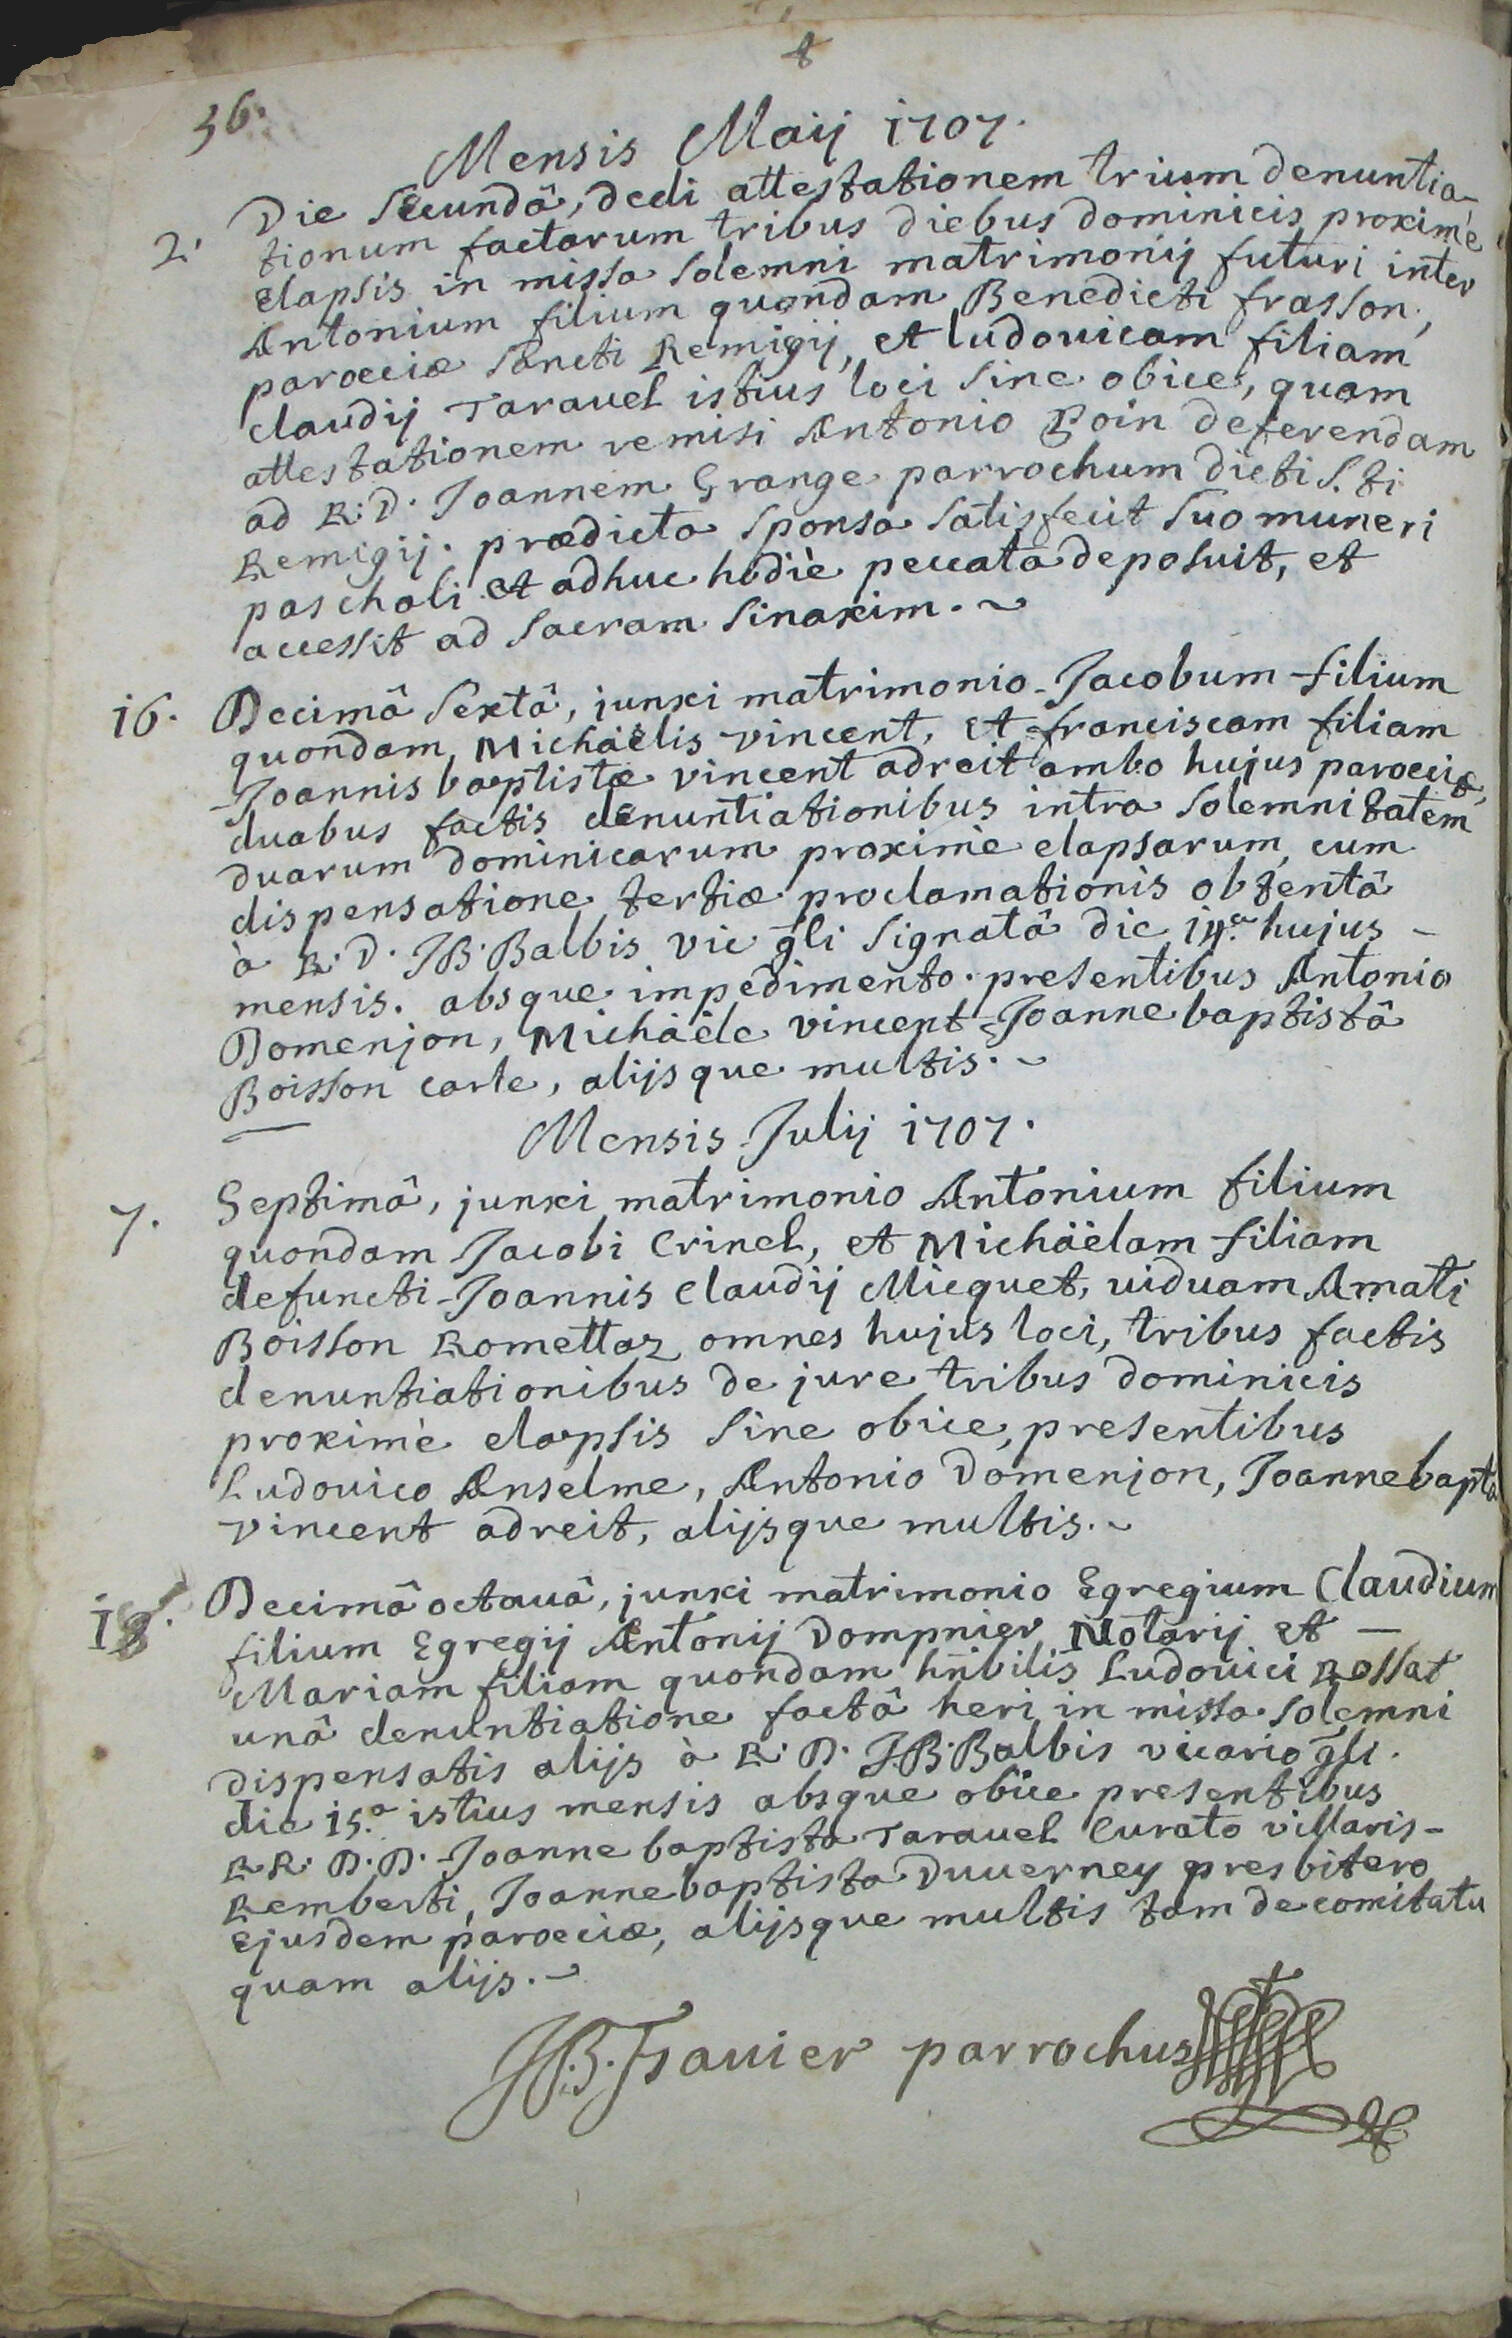 36.
Mensis Maij 1707.
Die Secundâ, dedi attestationem trium denuntia-
2. tionum factarum tribus diebus dominicis proximè
elapsis in missa Solemni matrimonij futuri inter
Antonium filium quondam Benedicti frasson,
paroeciæ Sancti Remigij, et ludovicam filiam
claudij Taravel istius loci Sine obice, quam
attestationem remisi Antonio Poin deferendam
ad R. D. Joannem Grange parrochum dicti S.ti
Remigij. prædicta Sponsa Satisfecit Suo muneri
paschali et adhuc hodiè peccata deposuit, et
accessit ad Sacram Sinaxim.
16. Decimâ Sextâ, junxi matrimonio Jacobum filium
quondam Michäelis vincent, et franciscam filiam
Joannis baptistæ vincent adreit ambo hujus paroeciæ,
duabus factis denuntiationibus intra Solemnitatem
duarum dominicarum proximè elapsarum, cum
dispensatione tertiæ proclamationis obtentâ
à R. D. JB. Balbis vic g̃li Signatâ die 14.a hujus -
mensis. absque impedimento. presentibus Antonio
Domenjon, Michäele vincent Joanne baptistâ
Boisson carle, alijsque multis.
Mensis Julij 1707.
7. Septimâ, junxi matrimonio Antonium filium
quondam Jacobi Crinel, et Michäelam filiam
defuncti Joannis Claudij Micquet, viduam Amati
Boisson Romettaz omnes hujus loci, tribus factis
denuntiationibus de jure tribus dominicis
proximè elapsis Sine obice, presentibus
Ludovico Anselme, Antonio Domenjon, Joannebapta
vincent adreit, alijsque multis.
18. Decimâ octavâ, junxi matrimonio Egregium Claudium
filium Egregij Antonij Dompnier Notarij et -
Mariam filiam quondam hñbilis Ludovici Rossat
unâ denuntiatione factâ heri in missa Solemni
dispensatis alijs à R. D. J.B. Balbis vicario g̃li.
die 15.a istius mensis absque obice presentibus
RR. D.D. Joanne baptista Taravel Curato villaris-
Remberti, Joannebaptista Duverney presbitero
Ejusdem paroeciæ, alijsque multis tam de comitatu
quam alijs.
JB. Travier parrochus